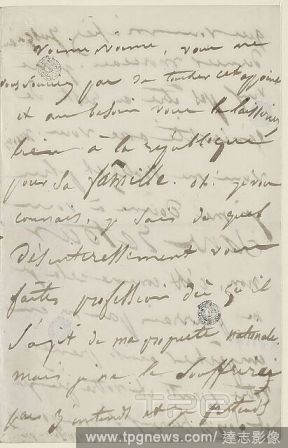 vous ne
vous
et au besoin vous le laisserez
bien à la république
pour sa famille. oh! je vous
connais, je sais de quel
désintéressement vous
faites profession dès qu'il
s'agit de ma propriété nationale,
mais je ne le souffrirez
pas j'entends et je prétends
TPG
www.tpgnews.com/達志影像